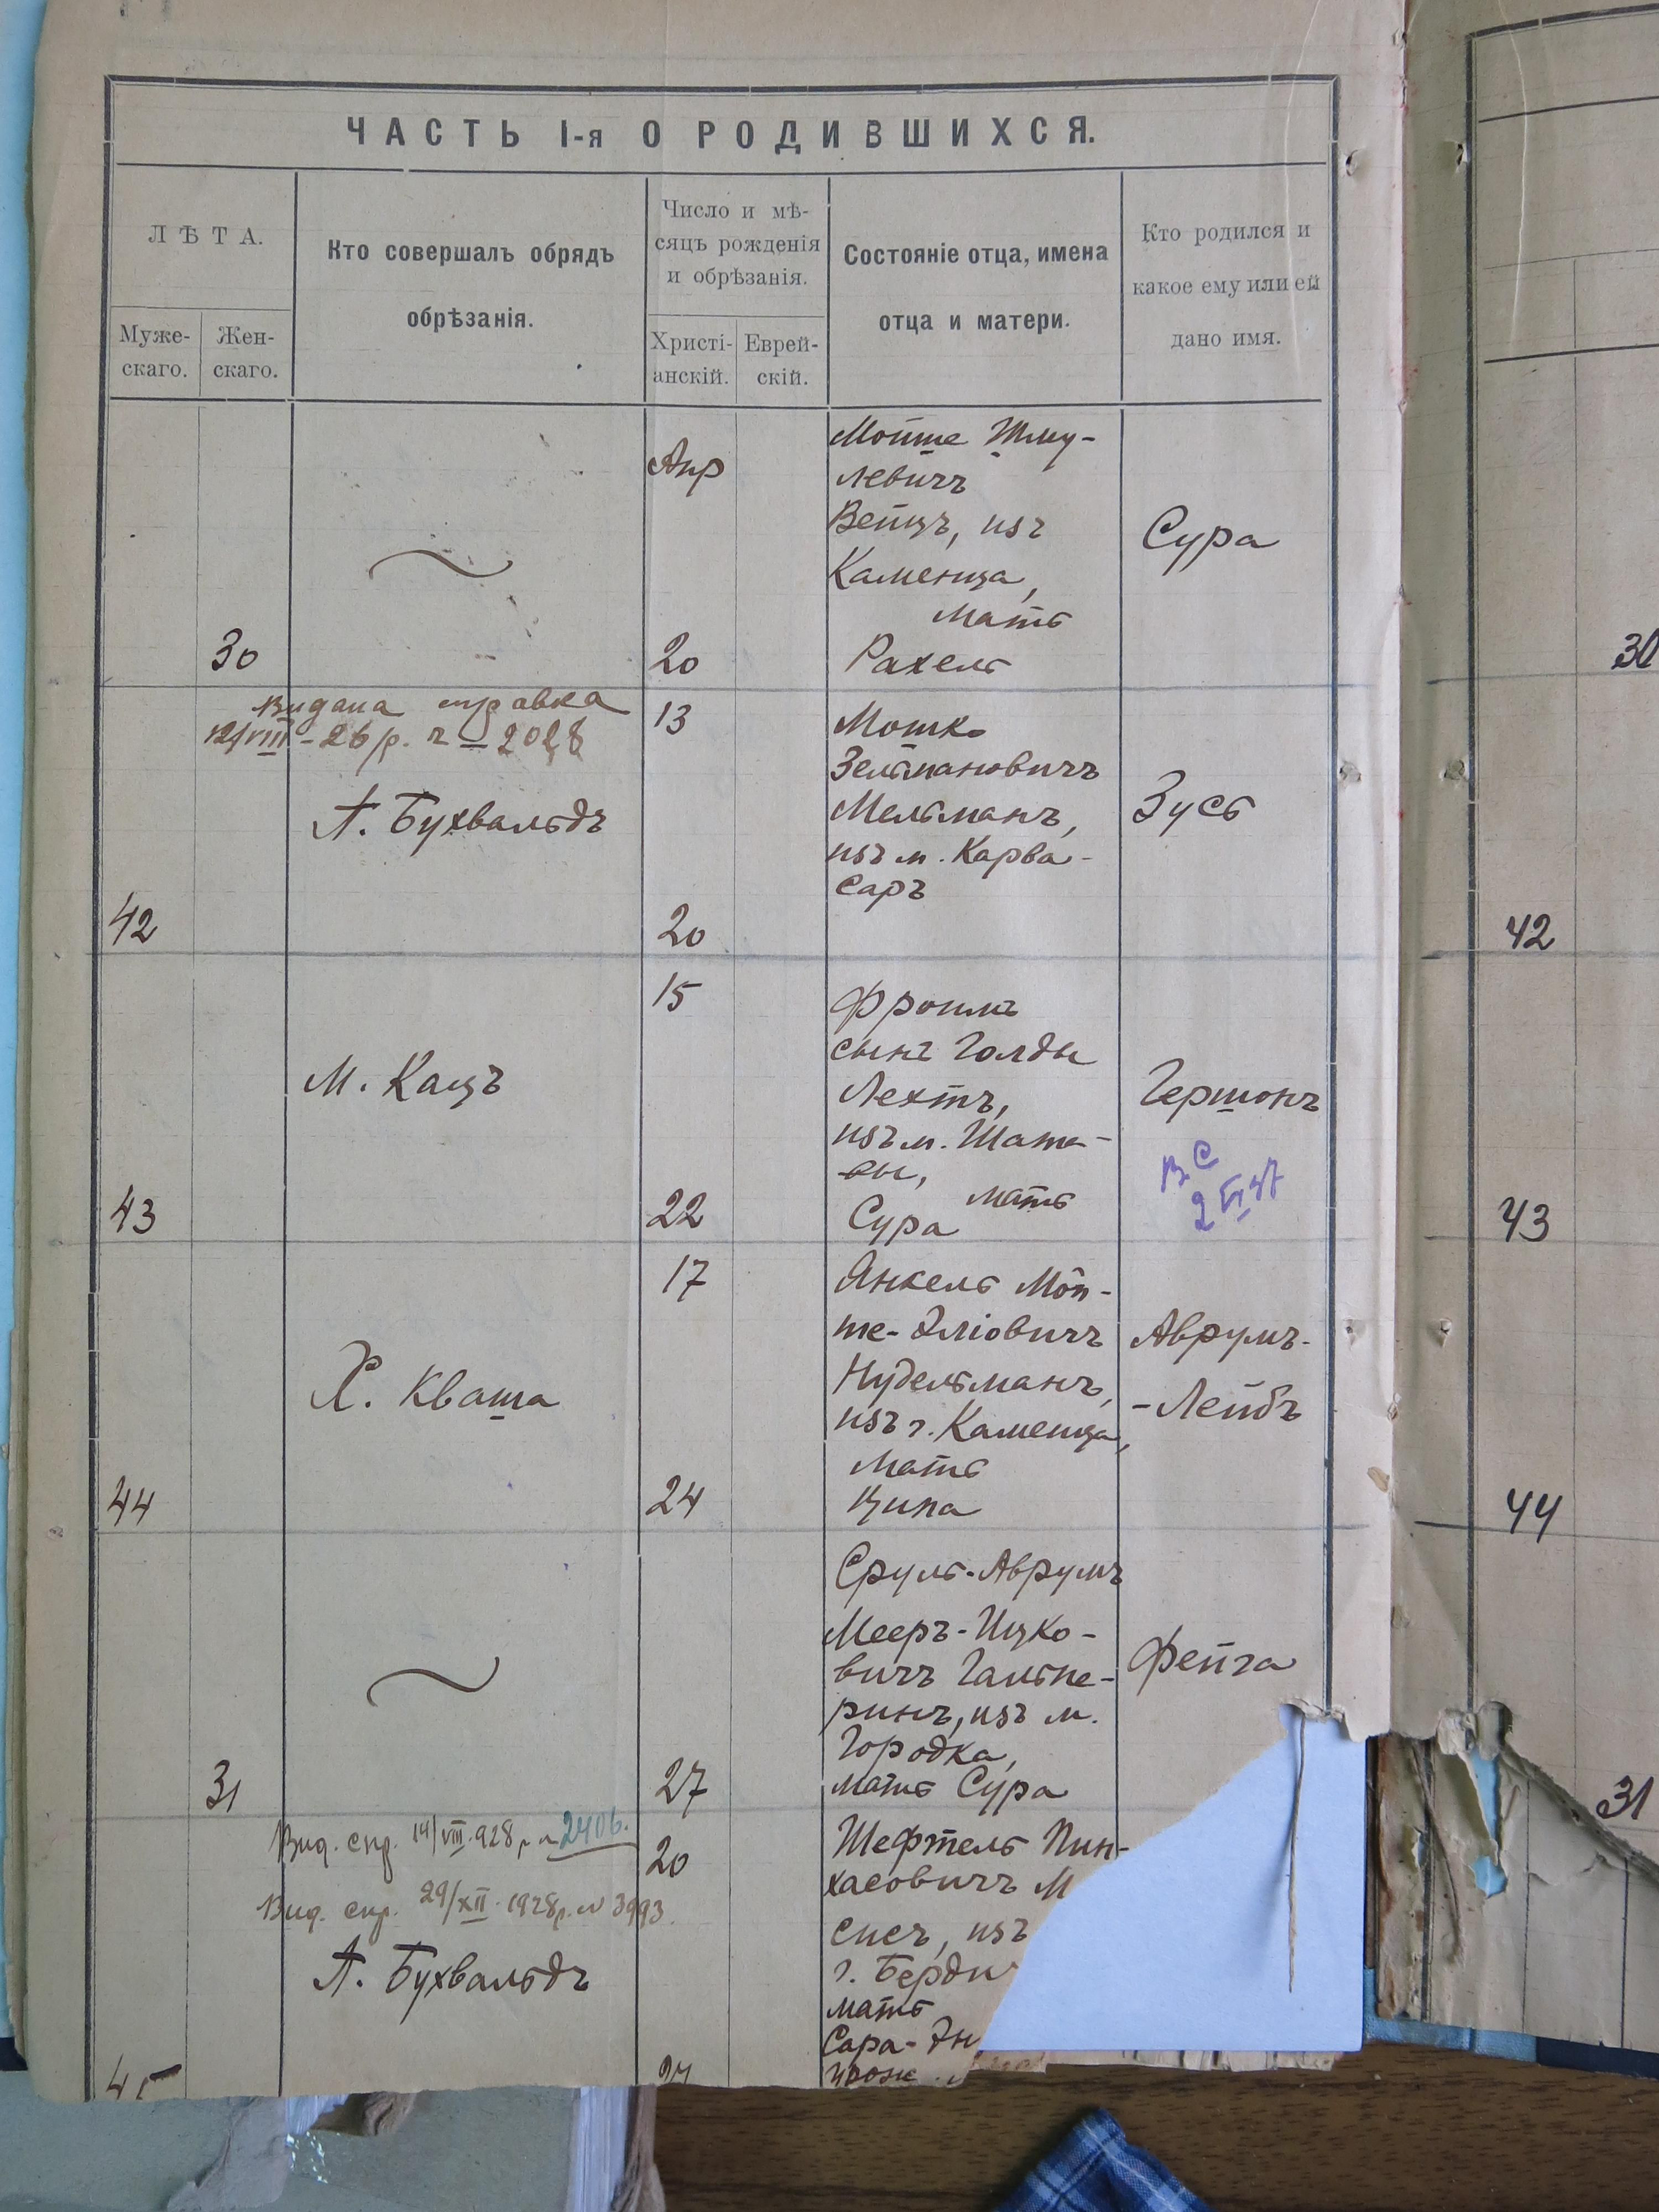 ЧАСТЬ I-я О РОДИВШИХСЯ.
ЛѢТА.
Муже-
скаго.
Жен-
скаго.
Кто совершалъ обрядъ
обрѣзанія.
Число и мѣ-
сяцъ рожденія
и обрѣзанія.
Христі-
анскій.
Еврей-
скій.
Состояніе отца, имена
отца и матери.
Кто родился и
какое ему или ей
дано имя.
30
Апр
20
Мойше Шму-
левичъ
Вейцъ, изъ
Каменца,
мать
Рахель
Сура
30
Видана справка
12/VIII - 26 р. ч - 2028
А. Бухвальдъ
42
13
20
Мошко
Зельмановичъ
Мельманъ,
изъ м. Карва-
саръ
Зусь
42
М. Кацъ
43
15
22
Фроимъ
сынъ Голды
Лехтъ,
изъ м. Шата-
вы,
мать
Сура
Гершонъ
ВС
2 VI 37
43
Х. Кваша
44
17
24
Янкель Мой-
ше-Эліовичъ
Нудельманъ,
изъ г. Каменца,
мать
Ципа
Аврумъ-
-Лейбъ
44
31
27
Сруль-Аврумъ
Мееръ-Ицко-
вичъ Гальпе-
ринъ, изъ м.
Городка,
мать Сура
Фейга
31
Вид. спр. 14/VIII 928 р. № 2406.
Вид. спр. 29/XII 1928 р. № 3993.
А. Бухвальдъ
45
20
27
Шефтель Пин-
хасовичъ М
сисъ, изъ
г. Берди
мать
Сара-Эн